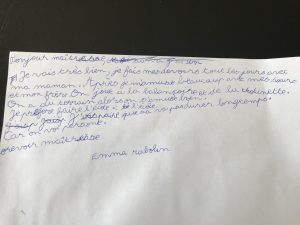 Bonjour maîtresse
Je vais très bien, je fais mes devoirs tout les jours avec
ma maman. Après je m'amuse beaucoup avec mes sœurs
et mon frère On joue à la balançoire et de la
On a du terrain alors on s'amuse bien.
Je préfère faire l'école à l'école.
J'espère que ça va pas durer longtemps.
Car on voi persone.
orevoir maîtresse
Emma